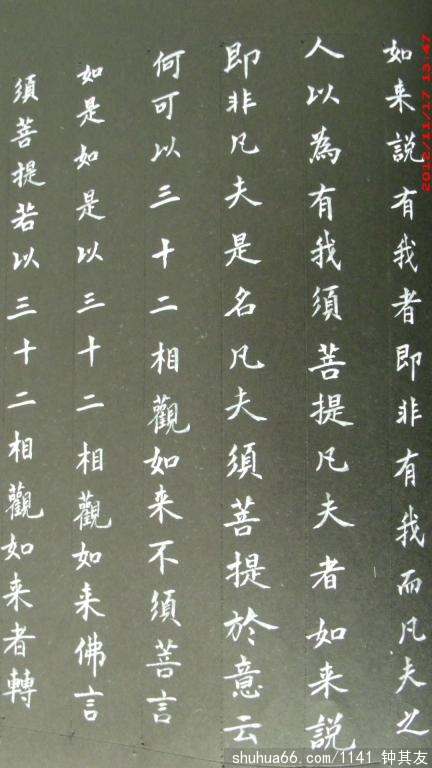 如来說有我者即非有我而凡夫之
人以為有我須菩提凡夫者如来說
即非凡夫是名凡夫須菩提於意云
何可以三十二相觀如来不須菩言
如是如是以三十二相觀如来佛言
須菩提若以三十二相觀如来者轉
2012/11/17 13:47
shuhua66.com/1141 钟其友